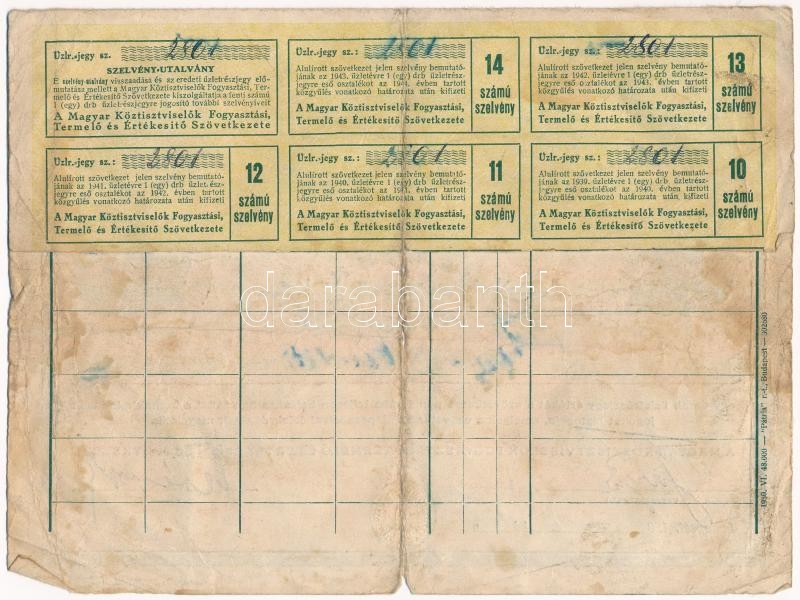 Üzlr.-jegy sz. 2801
SZELVÉNY-UTALVÁNY
E szelvény-utalvány visszaadása és az eredeti üzletrészjegy elő-
mutatása mellett a Magyar Köztisztviselők Fogyasztási, Ter-
melő és Értékesítő Szövetkezete kiszolgáltatja a fenti számú
1 (egy) drb üzletrészjegyre jogosító további szelvényeit
A Magyar Köztisztviselők Fogyasztási,
Termelő és Értékesítő Szövetkezete
Üzlr.-jegy sz.: 2801
Alulírott szövetkezet jelen szelvény bemutató-
jának az 1943. üzletévre 1 (egy) drb üzletrész-
jegyre eső osztalékot az 1944. évben tartott
közgyűlés vonatkozó határozata után kifizeti
A Magyar Köztisztviselők Fogyasztási,
Termelő és Értékesítő Szövetkezete
14
számú
szelvény
Üzlr.-jegy sz.: 2801
Alulírott szövetkezet jelen szelvény bemutató-
jának az 1942. üzletévre 1 (egy) drb üzletrész-
jegyre eső osztalékot az 1943. évben tartott
közgyűlés vonatkozó határozata után kifizeti
A Magyar Köztisztviselők Fogyasztási,
Termelő és Értékesítő Szövetkezete
13
számú
szelvény
Üzlr.-jegy sz.: 2801
Alulírott szövetkezet jelen szelvény bemutató-
jának az 1941. üzletévre 1 (egy) drb üzletrész-
jegyre eső osztalékot az 1942. évben tartott
közgyűlés vonatkozó határozata után kifizeti
A Magyar Köztisztviselők Fogyasztási,
Termelő és Értékesítő Szövetkezete
12
számú
szelvény
Üzlr.-jegy sz.: 2801
Alulírott szövetkezet jelen szelvény bemutató-
jának az 1940. üzletévre 1 (egy) drb üzletrész-
jegyre eső osztalékot az 1941. évben tartott
közgyűlés vonatkozó határozata után kifizeti
A Magyar Köztisztviselők Fogyasztási,
Termelő és Értékesítő Szövetkezete
11
számú
szelvény
Üzlr.-jegy sz.: 2801
Alulírott szövetkezet jelen szelvény bemutató-
jának az 1939. üzletévre 1 (egy) drb üzletrész-
jegyre eső osztalékot az 1940. évben tartott
közgyűlés vonatkozó határozata után kifizeti
A Magyar Köztisztviselők Fogyasztási,
Termelő és Értékesítő Szövetkezete
10
számú
szelvény
darabanth
"Pátria" r.-t., Budapest